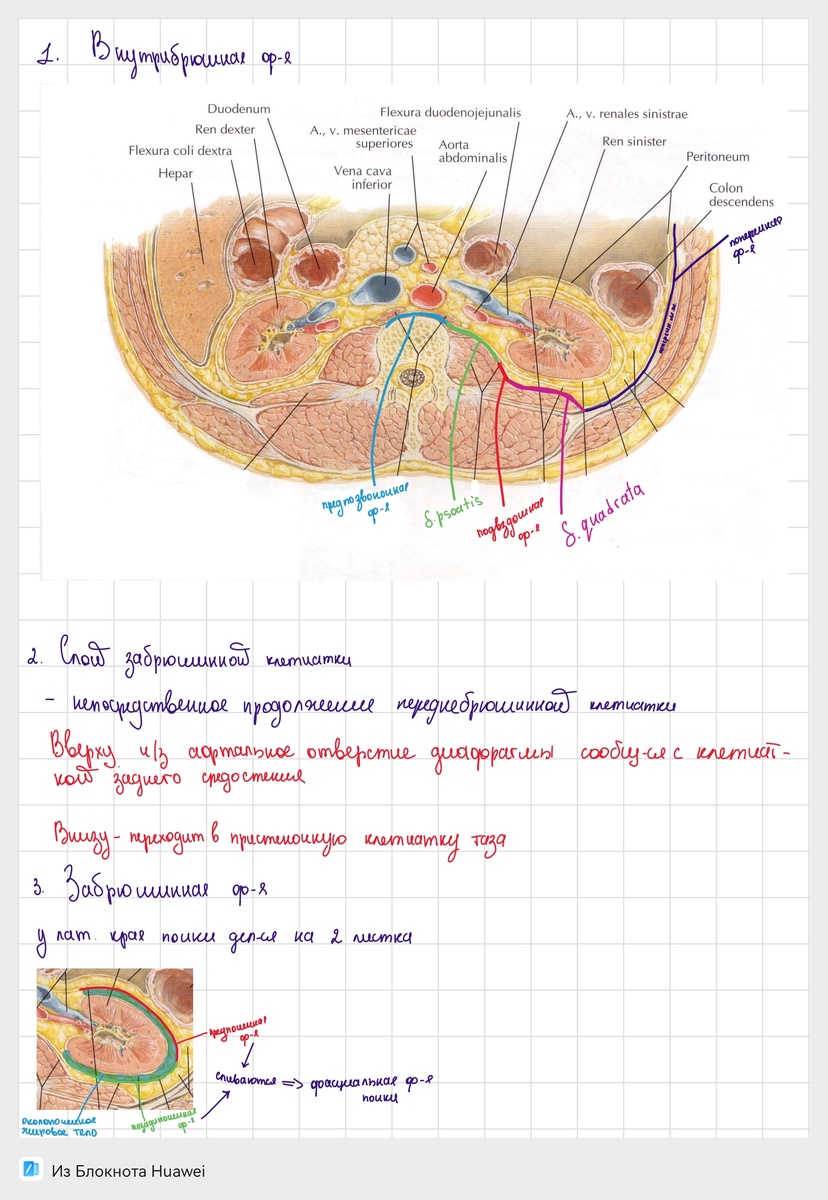 1. Внутрибрюшная ф-я
Duodenum
Ren dexter
Flexura coli dextra
Hepar
Flexura duodenojejunalis
A., v. mesentericae
superiores
Vena cava
inferior
Aorta
abdominalis
A., v. renales sinistrae
Ren sinister
Peritoneum
Colon
descendens
поперечная
ф-я
предпозвоночная
ф-я
f. psoatis
подвздошная
ф-я
f. quadrata
2. Слой забрюшинной клетчатки
- непосредственное продолжение переднебрюшинной клетчатки
Вверху ч/з аортальное отверстие диафрагмы сообщ-ся с клетчат-
кой заднего средостения
Внизу - переходит в пристеночную клетчатку таза
3. Забрюшинная ф-я
у лат. края почки дел-ся на 2 листка
предпочечная
ф-я
сливаются => фасциальная ф-я
почки
околопочечное
жировое тело
позадипочечная
ф-я
Из Блокнота Huawei